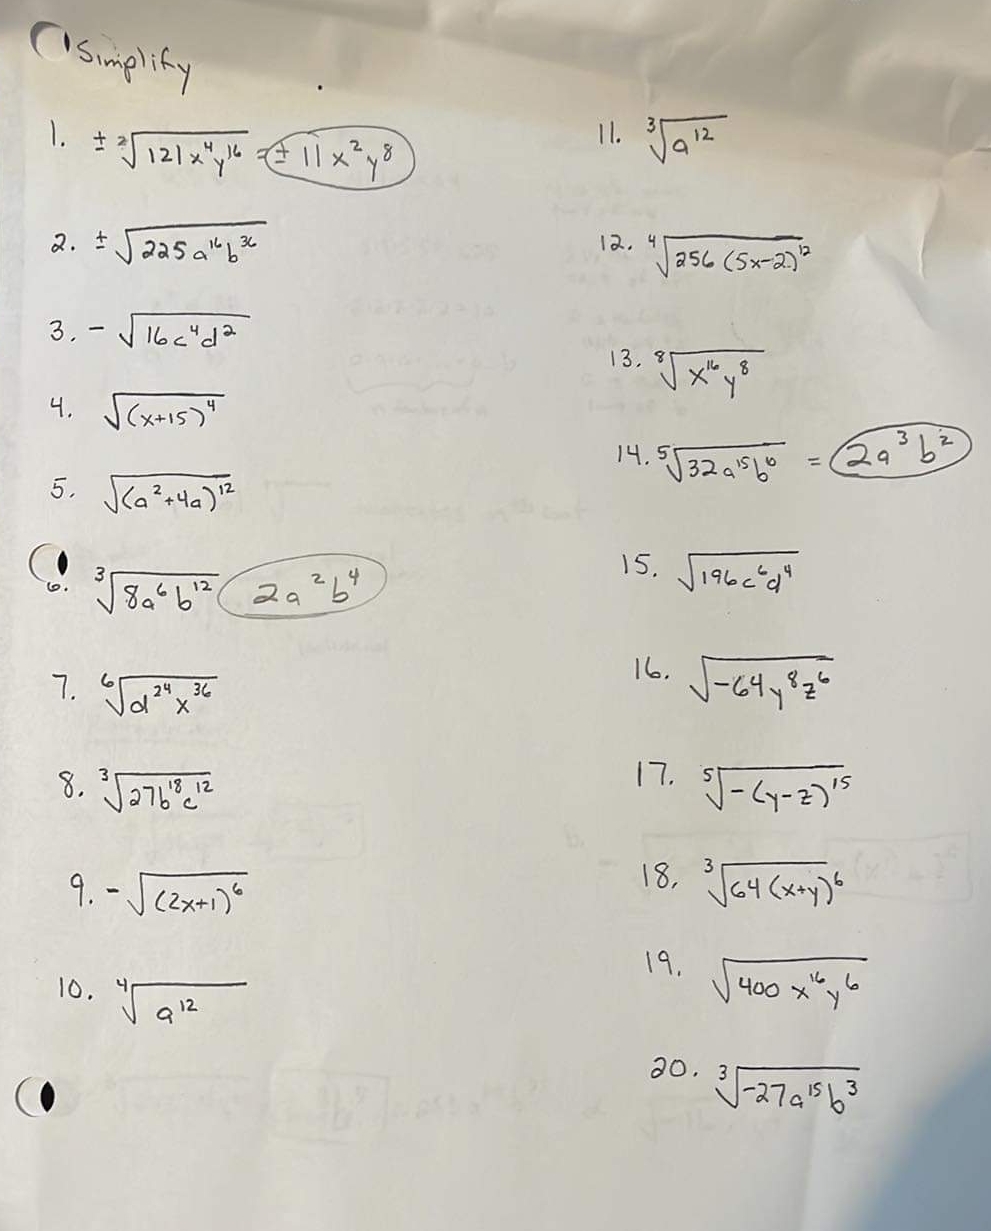 Simplify
1. ± ²√(121x⁴y¹⁶) = ± 11x²y⁸
2. ± √(225a¹⁶b³⁶)
3. - √(16c⁴d²)
4. √((x+15)⁴)
5. √((a²+4a)¹²)
6. ³√(8a⁶b¹²) 2a²b⁴
7. ⁶√(d²⁴x³⁶)
8. ³√(27b¹⁸c¹²)
9. - √((2x+1)⁶)
10. ⁴√(a¹²)
11. ³√(a¹²)
12. ⁴√(256(5x-2)¹²)
13. ⁸√(x¹⁶y⁸)
14. ⁵√(32a¹⁵b¹⁰) = 2a³b²
15. √(196c⁶d⁴)
16. √(-64y⁸z⁶)
17. ⁵√(-(y-z)¹⁵)
18. ³√(64(x+y)⁶)
19. √(400x¹⁶y⁶)
20. ³√(-27a¹⁵b³)